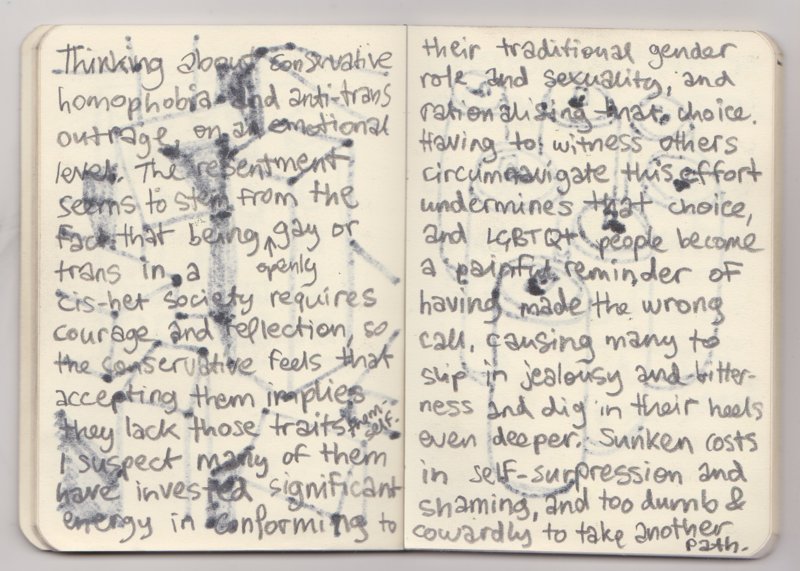 Thinking about conservative
homophobia and anti-trans
outrage, on an emotional
level. The resentment
seems to stem from the
fact that being openly gay or
trans in a
cis-het society requires
courage and reflection, so
the conservative feels that
accepting them implies
they lack those traits them-self.
I suspect many of them
have invested significant
energy in conforming to
their traditional gender
role and sexuality, and
rationalising that choice.
Having to witness others
circumnavigate this effort
undermines that choice,
and LGBTQ+ people become
a painful reminder of
having made the wrong
call, causing many to
slip in jealousy and bitter-
ness and dig in their heels
even deeper. Sunken costs
in self-surpression and
shaming, and too dumb &
cowardly to take another
path.